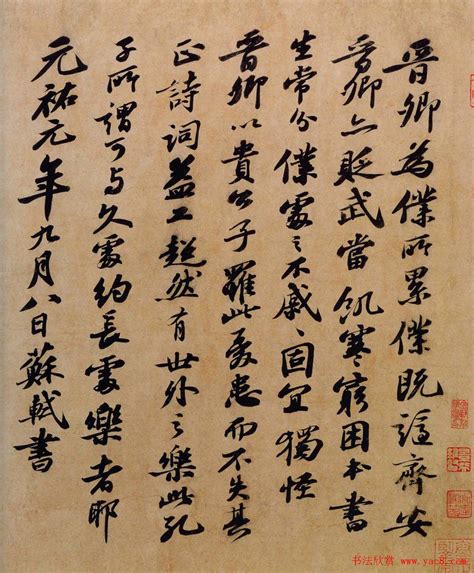 晉卿為僕所累僕既謫齊安
晉卿亦貶武當飢寒窮困本書
生常分僕處之不戚〻固宜獨怪
晉卿以貴公子罹此憂患而不失其
正詩詞益工超然有世外之樂此孔
子所謂可与久處約長處樂者耶
元祐元年九月八日蘇軾書
书法欣赏 www.yac8.com